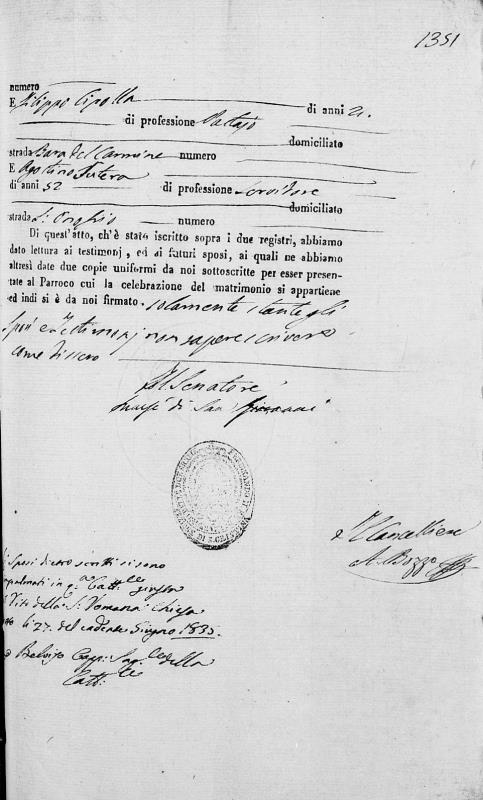 1351
numero
E Filippo Cipolla di anni 21.
di professione Bottajo
domiciliato
strada Bara del Carmine numero
E Agostino Tutera
di anni 52 di professione Servitore
domiciliato
strada S. Onofrio numero
Di quest'atto, ch'è stato iscritto sopra i due registri, abbiamo
dato lettura ai testimonj, ed ai futuri sposi, ai quali ne abbiamo
altresì date due copie uniformi da noi sottoscritte per esser presen-
tate al Parroco cui la celebrazione del matrimonio si appartiene
ed indi si è da noi firmato. solamente stante gli
sposi e Testimonj non sapere scrivere
come dissero
Il Senatore
di San Giovanni
Il Cancelliere
A. Bozzo
Sposi dietro scritti si sono
in q.a Catt.le giusta
Rito della S. Romana Chiesa
li 27. del cadente Giugno 1835.
Capp. Sag. le della
Catt.le